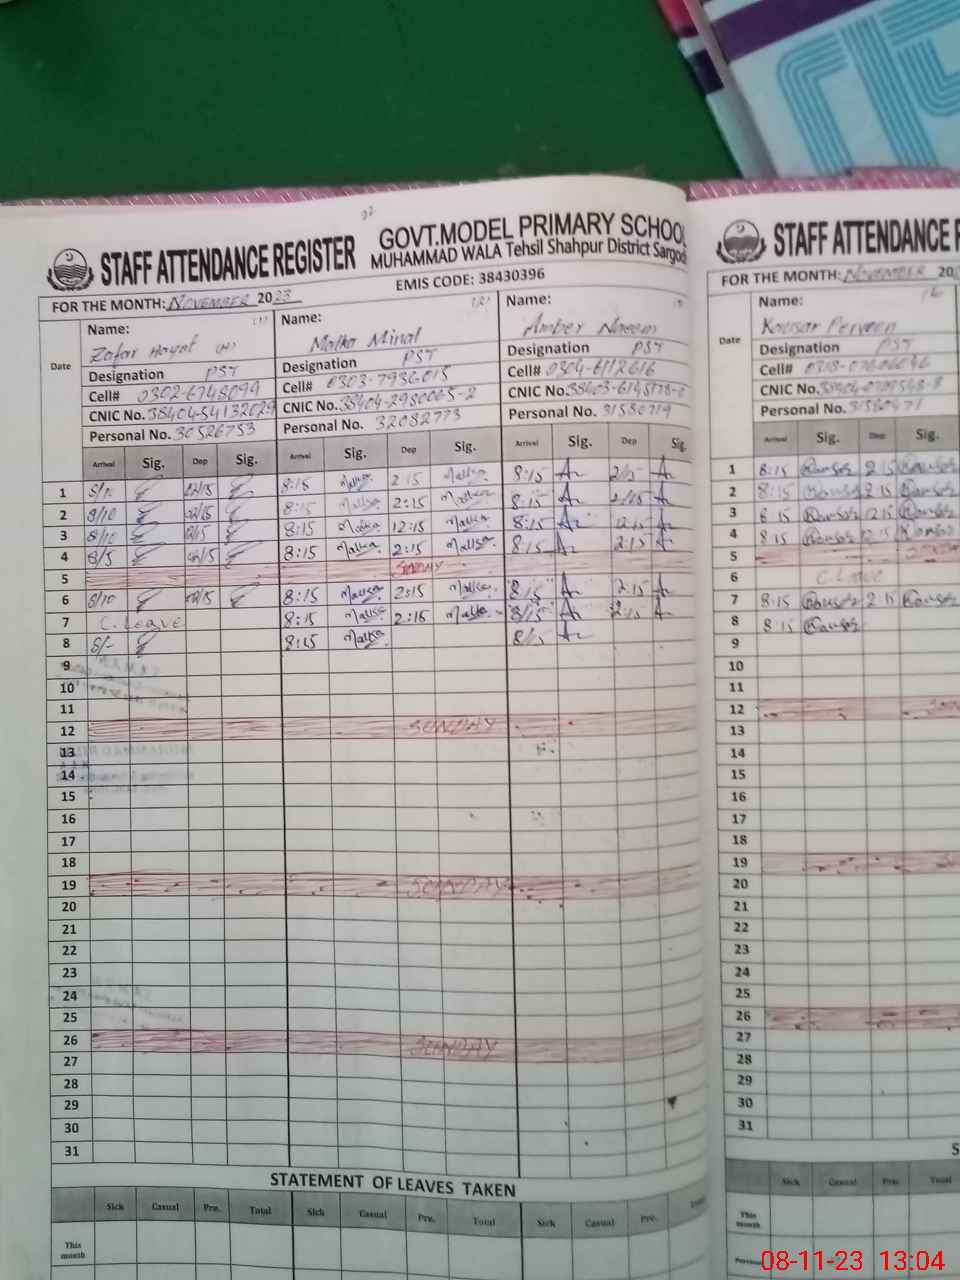 STAFF ATTENDANCE REGISTER
GOVT.MODEL PRIMARY SCHOOL
MUHAMMAD WALA Tehsil Shahpur District Sargod
FOR THE MONTH: NOVEMBER 2023
EMIS CODE: 38430396
Date
Name: (1)
Zafar Hayat (H)
Designation PST
Cell# 0302-6748099
CNIC No. 38404-54132029
Personal No. 30526753
Name: (2)
Malka Minal
Designation PST
Cell# 0303-7936015
CNIC No. 38404-2980065-2
Personal No. 32082773
Name:
Amber Naeem
Designation PST
Cell# 0304-6112616
CNIC No.
Personal No. 31580719
Arrival Sig. Dep Sig. Arrival Sig. Dep Sig. Arrival Sig. Dep Sig.
1 8/10 8:15 Malka 2:15 Malka 8:15 2:15
2 8/10 8:15 Malka 2:15 Malka 8:15 2:15
3 8/10 8:15 Malka 12:15 Malka 8:15 12:15
4 8/5 8:15 Malka 2:15 Malka 8:15 2:15
5 SUNDAY
6 8/10 8:15 Malka 2:15 Malka 8:15 2:15
7 C. Leave 8:15 Malka 2:15 Malka 8/15 2:15
8 8/- 8:15 Malka 8/15
9
10
11
12 SUNDAY
13
14
15
16
17
18
19 SUNDAY
20
21
22
23
24
25
26 SUNDAY
27
28
29
30
31
STATEMENT OF LEAVES TAKEN
Sick Casual Pre. Total Sick Casual Pre. Total Sick Casual Pre. Total
This month
STAFF ATTENDANCE R
FOR THE MONTH: NOVEMBER 20
Date
Name:
Kausar Perveen
Designation PST
Cell#
CNIC No.
Personal No.
Arrival Sig. Dep Sig.
1 8:15 Kausar 2 15 Kausar
2 8:15 Kausar 2 15 Kausar
3 8 15 Kausar 12 15 Kausar
4 8 15 Kausar 2 15 Kausar
5
6 C. Leave
7 8:15 Kausar 2 15 Kausar
8 8 15 Kausar
9
10
11
12
13
14
15
16
17
18
19
20
21
22
23
24
25
26
27
28
29
30
31
S
Sick Casual Pre. Total
This month
08-11-23 13:04